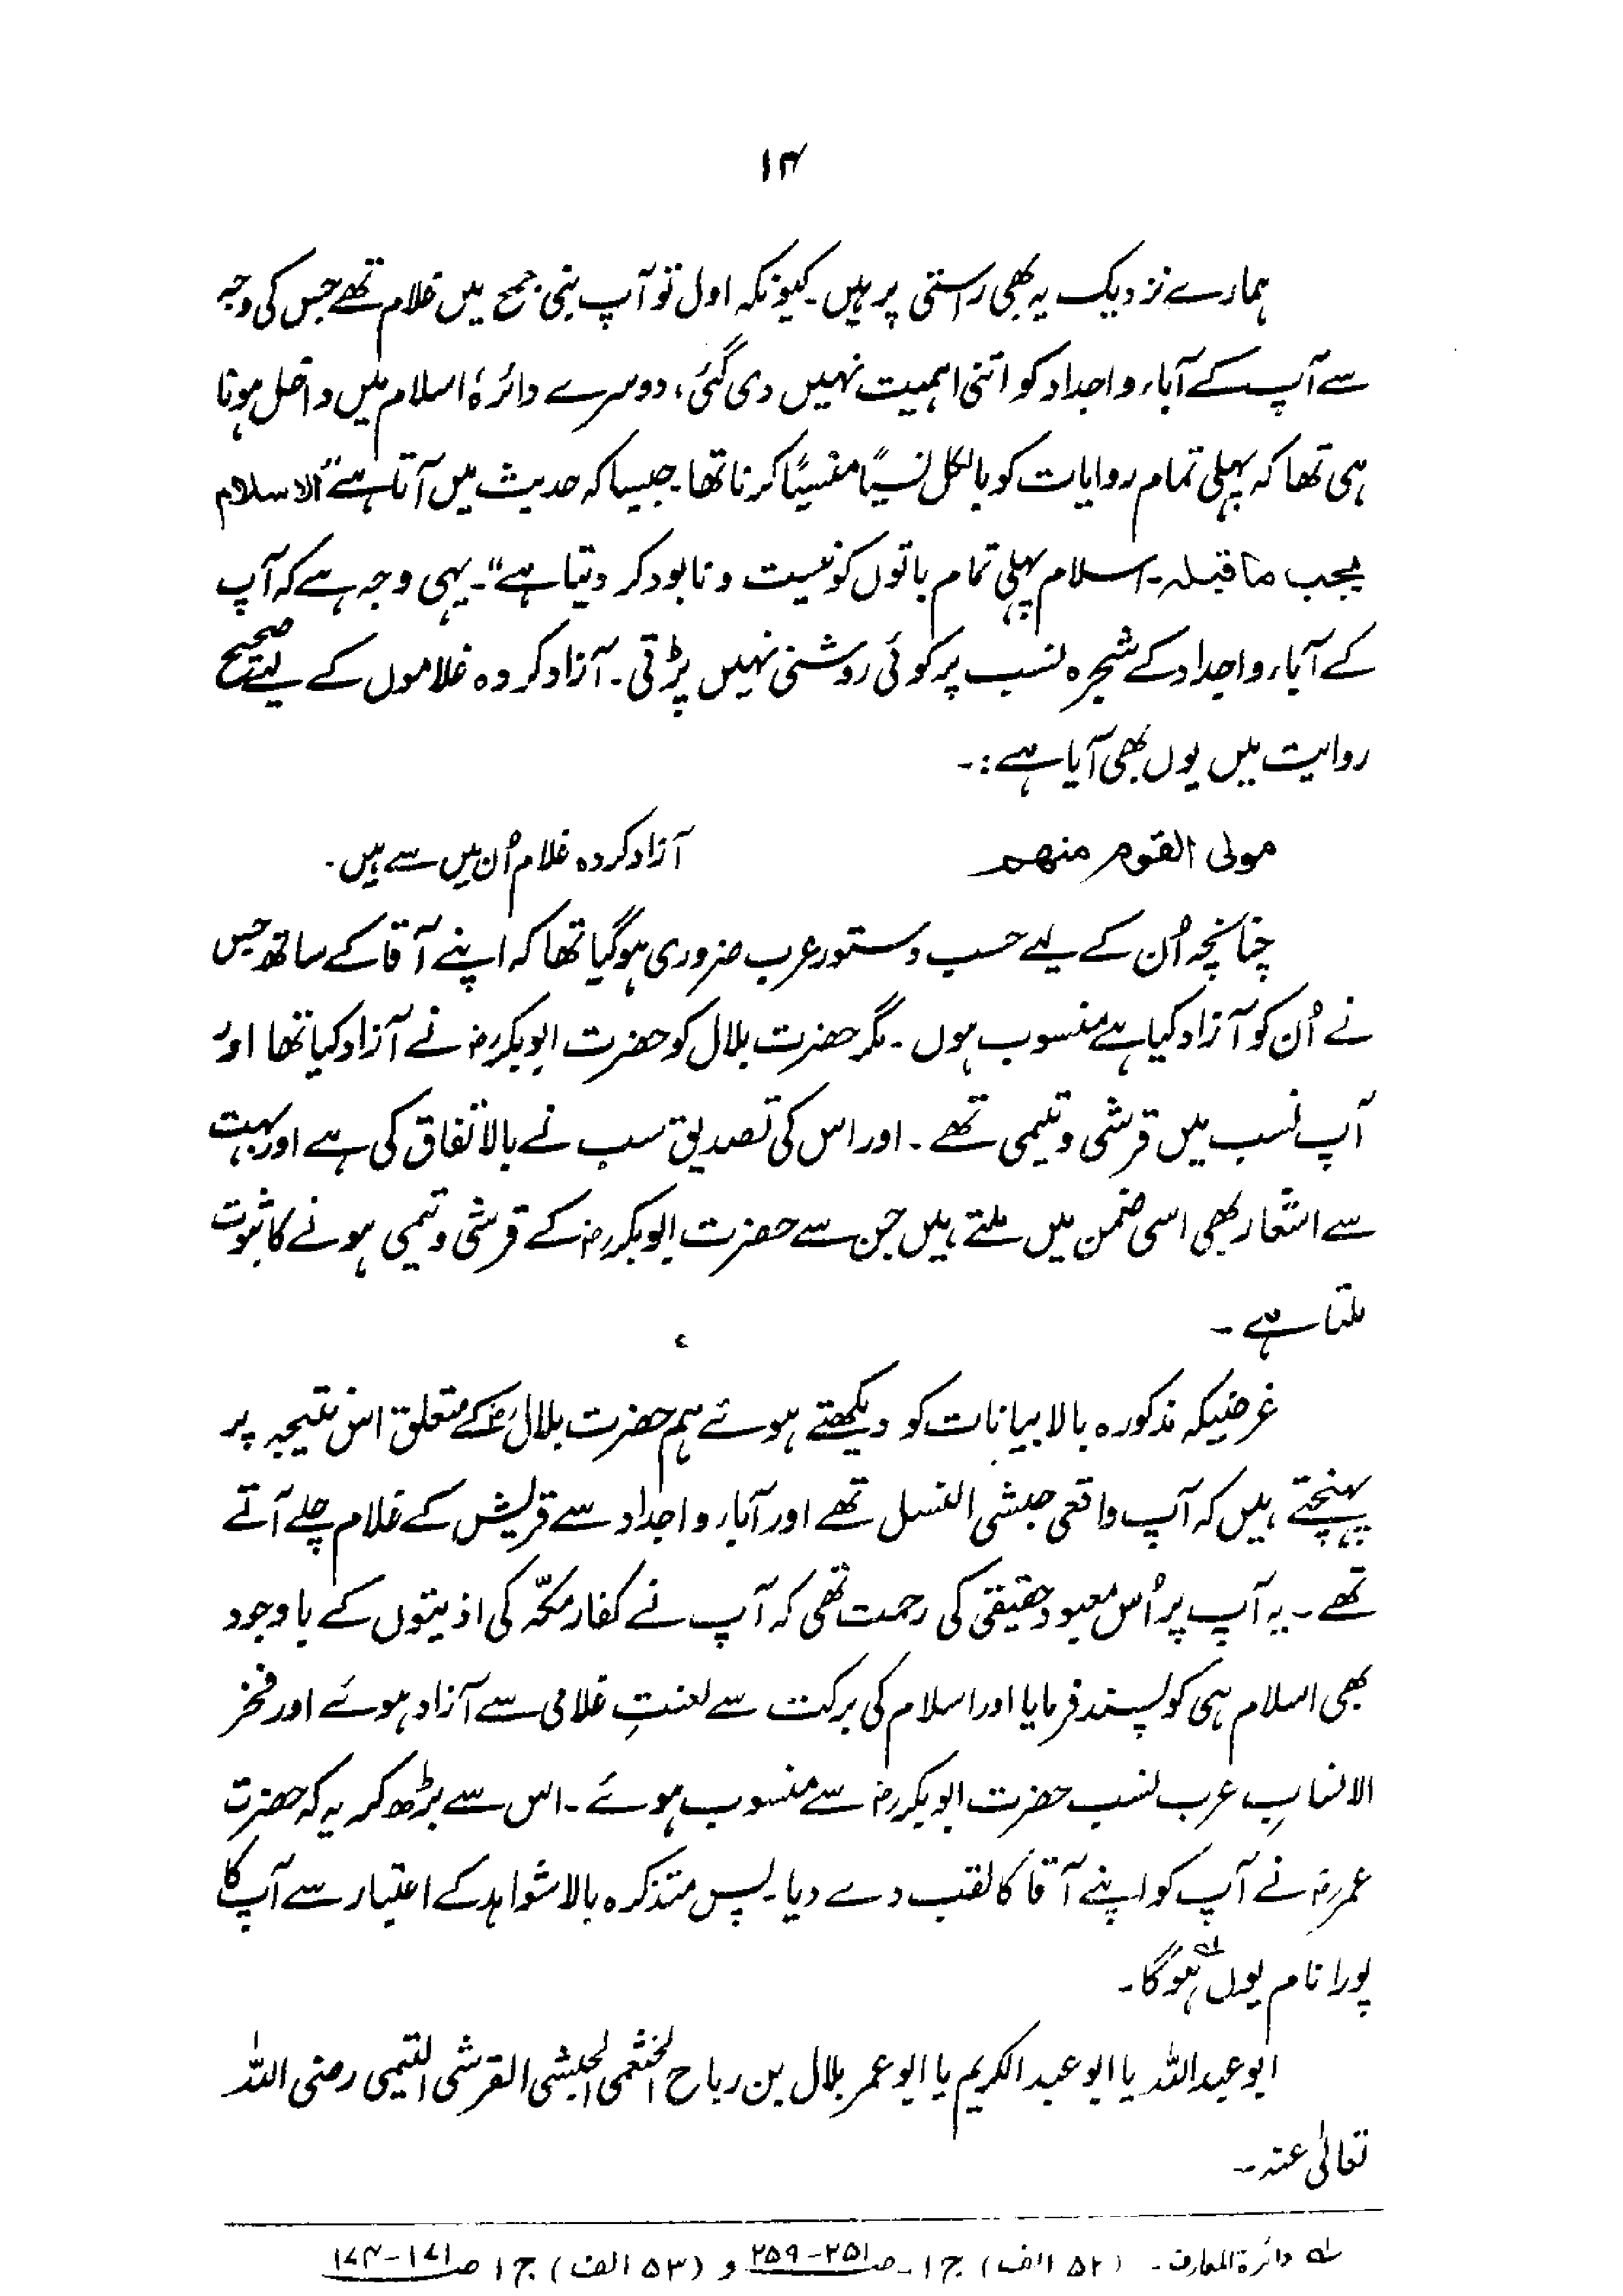 ۱۴
ہمارے نزدیک یہ بھی راستی پر ہیں۔ کیونکہ اول تو آپ بنی جمح میں غلام تھے جس کی وجہ
سے آپ کے آباء و اجداد کو اتنی اہمیت نہیں دی گئی، دوسرے دائرۂ اسلام میں داخل ہونا
ہی تھا کہ پہلی تمام روایات کو بالکل نسیًا منسیًا کرنا تھا۔ جیسا کہ حدیث میں آتا ہے "الاسلام
یجب ما قبلہ۔ اسلام پہلی تمام باتوں کو نیست و نابود کر دیتا ہے"۔ یہی وجہ ہے کہ آپ
کے آباء و اجداد کے شجرہ نسب پر کوئی روشنی نہیں پڑتی۔ آزاد کردہ غلاموں کے لیے صحیح
روایت میں یوں بھی آیا ہے:۔
مولی القوم منھم آزاد کردہ غلام اُن میں سے ہیں۔
چنانچہ اُن کے لیے حسب دستور عرب ضروری ہو گیا تھا کہ اپنے آقا کے ساتھ جس
نے اُن کو آزاد کیا ہے منسوب ہوں۔ مگر حضرت بلال کو حضرت ابوبکررض نے آزاد کیا تھا اور
آپ نسب میں قرشی و تیمی تھے۔ اور اس کی تصدیق سب نے بالاتفاق کی ہے اور بہت
سے اشعار بھی اسی ضمن میں ملتے ہیں جن سے حضرت ابوبکررض کے قرشی و تیمی ہونے کا ثبوت
ملتا ہے۔
غرضیکہ مذکورہ بالا بیانات کو دیکھتے ہوئے ہم حضرت بلالرض کے متعلق اس نتیجہ پر
پہنچتے ہیں کہ آپ واقعی حبشی النسل تھے اور آباء و اجداد سے قریش کے غلام چلے آتے
تھے۔ یہ آپ پر اُس معبود حقیقی کی رحمت تھی کہ آپ نے کفار مکّہ کی اذیتوں کے باوجود
بھی اسلام ہی کو پسند فرمایا اور اسلام کی برکت سے لعنتِ غلامی سے آزاد ہوئے اور فخر
الانسابِ عرب نسب حضرت ابوبکررض سے منسوب ہوئے۔ اس سے بڑھ کر یہ کہ حضرت
عمررض نے آپ کو اپنے آقا کا لقب دے دیا۔ پس متذکرہ بالا شواہد کے اعتبار سے آپ کا
پورا نام یوں ہوگا۔ؔلہ
ابو عبداللہ یا ابو عبدالکریم یا ابو عمر بلال بن رباح الخثعمی الحبشی القرشی التیمی رضی اللہ
تعالٰی عنہ۔
لہ دائرۃ المعارف۔ (۵۲ الف) ج ۱۔ ص ۲۵۱-۲۵۹ و (۵۳ الف) ج ۱ ص ۱۷۱-۱۷۴